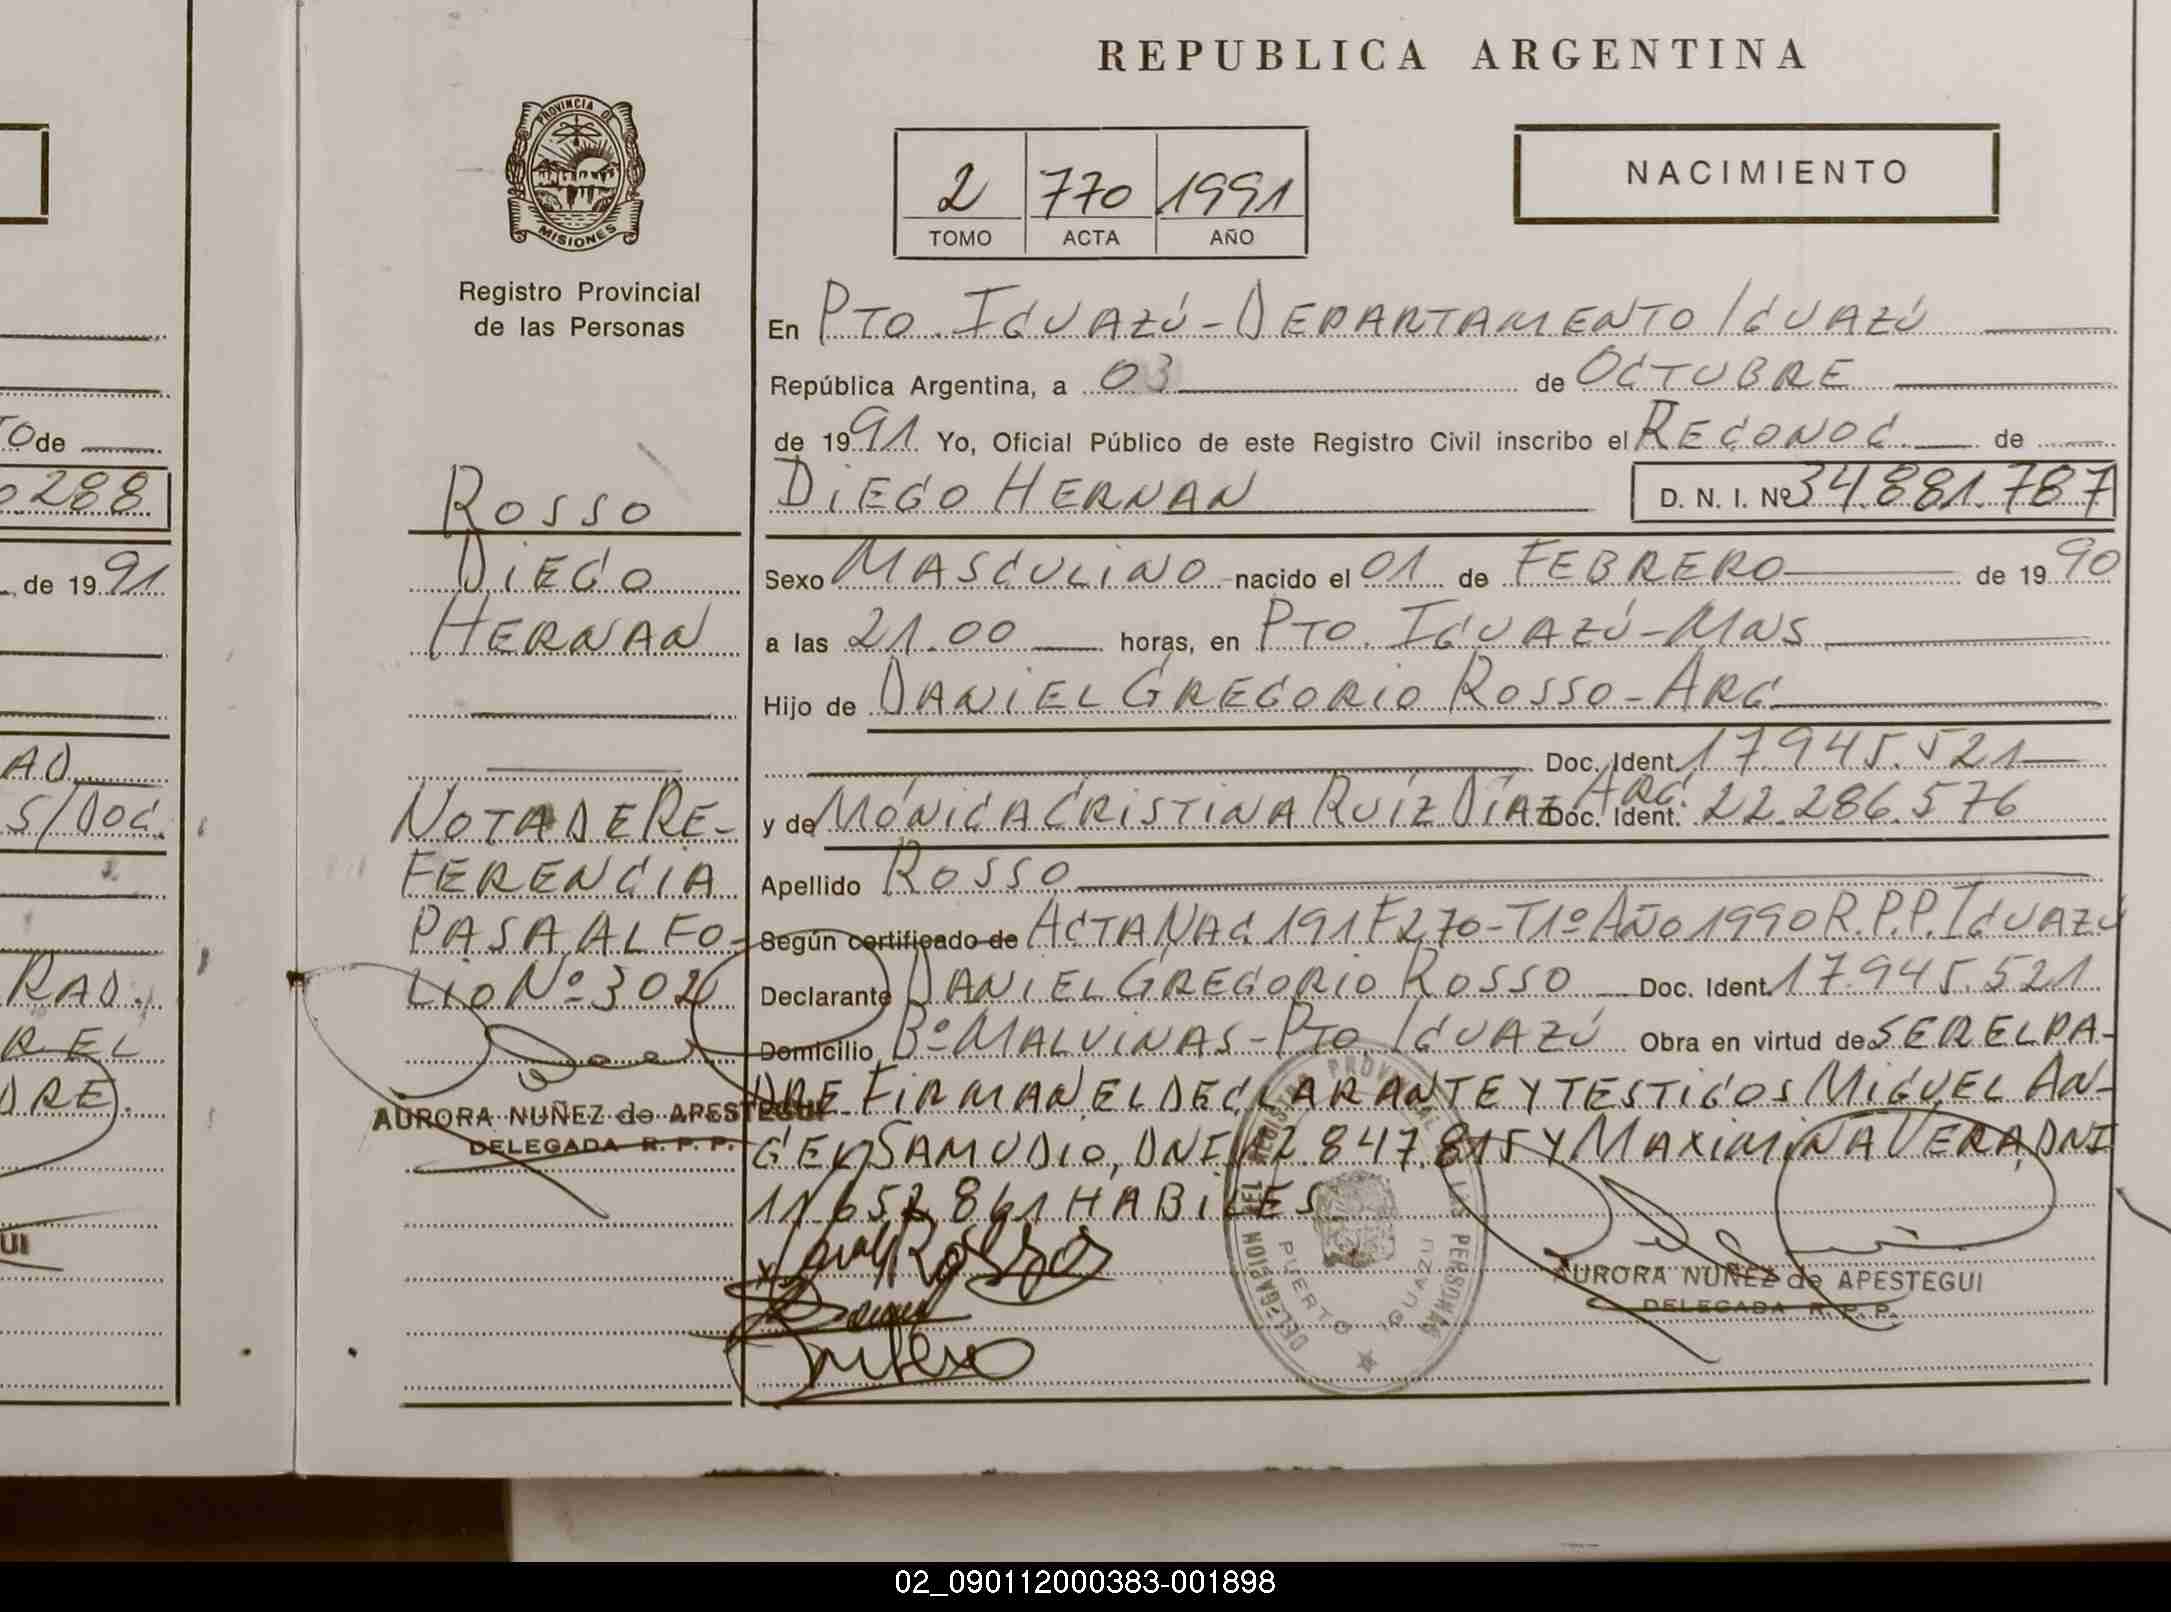 REPUBLICA ARGENTINA
PROVINCIA DE
MISIONES
Registro Provincial
de las Personas
2 770 1991
TOMO ACTA AÑO
NACIMIENTO
En PTO. IGUAZÚ - DEPARTAMENTO IGUAZÚ
República Argentina, a 03 de OCTUBRE
de 1991 Yo, Oficial Público de este Registro Civil inscribo el RECONOC. de
DIEGO HERNAN D. N. I. Nº 34.881.787
Sexo MASCULINO nacido el 01 de FEBRERO de 1990
a las 21.00 horas, en PTO. IGUAZÚ - MNS
Hijo de DANIEL GREGORIO ROSSO - ARG
Doc. Ident. 17.945.521
y de MÓNICA CRISTINA RUÍZ DÍAZ ARG. Doc. Ident. 22.286.576
Apellido ROSSO
Según certificado de ACTA NAC. 191 F 270 - T1º AÑO 1990 R.P.P. IGUAZÚ
Declarante DANIEL GREGORIO ROSSO Doc. Ident. 17.945.521
Domicilio Bº MALVINAS - PTO. IGUAZÚ Obra en virtud de SER EL PA-
DRE FIRMAN EL DECLARANTE Y TESTIGOS MIGUEL AN-
GEL SAMUDIO, DNI 12.847.815 Y MAXIMINA VERA, DNI
11.652.861 HABILES
Rosso
AURORA NUÑEZ de APESTEGUI
DELEGADA R. P. P.
DELEGACION DEL REGISTRO PROVINCIAL DE LAS PERSONAS
PUERTO IGUAZU
ROSSO
DIEGO
HERNAN
NOTA DE RE-
FERENCIA
PASA AL FO-
LIO Nº 302
AURORA NUÑEZ de APESTEGUI
DELEGADA R. P. P.
TO de
288
de 1991
AD
S/DOC.
RAD.
R EL
DRE.
UI
02_090112000383-001898